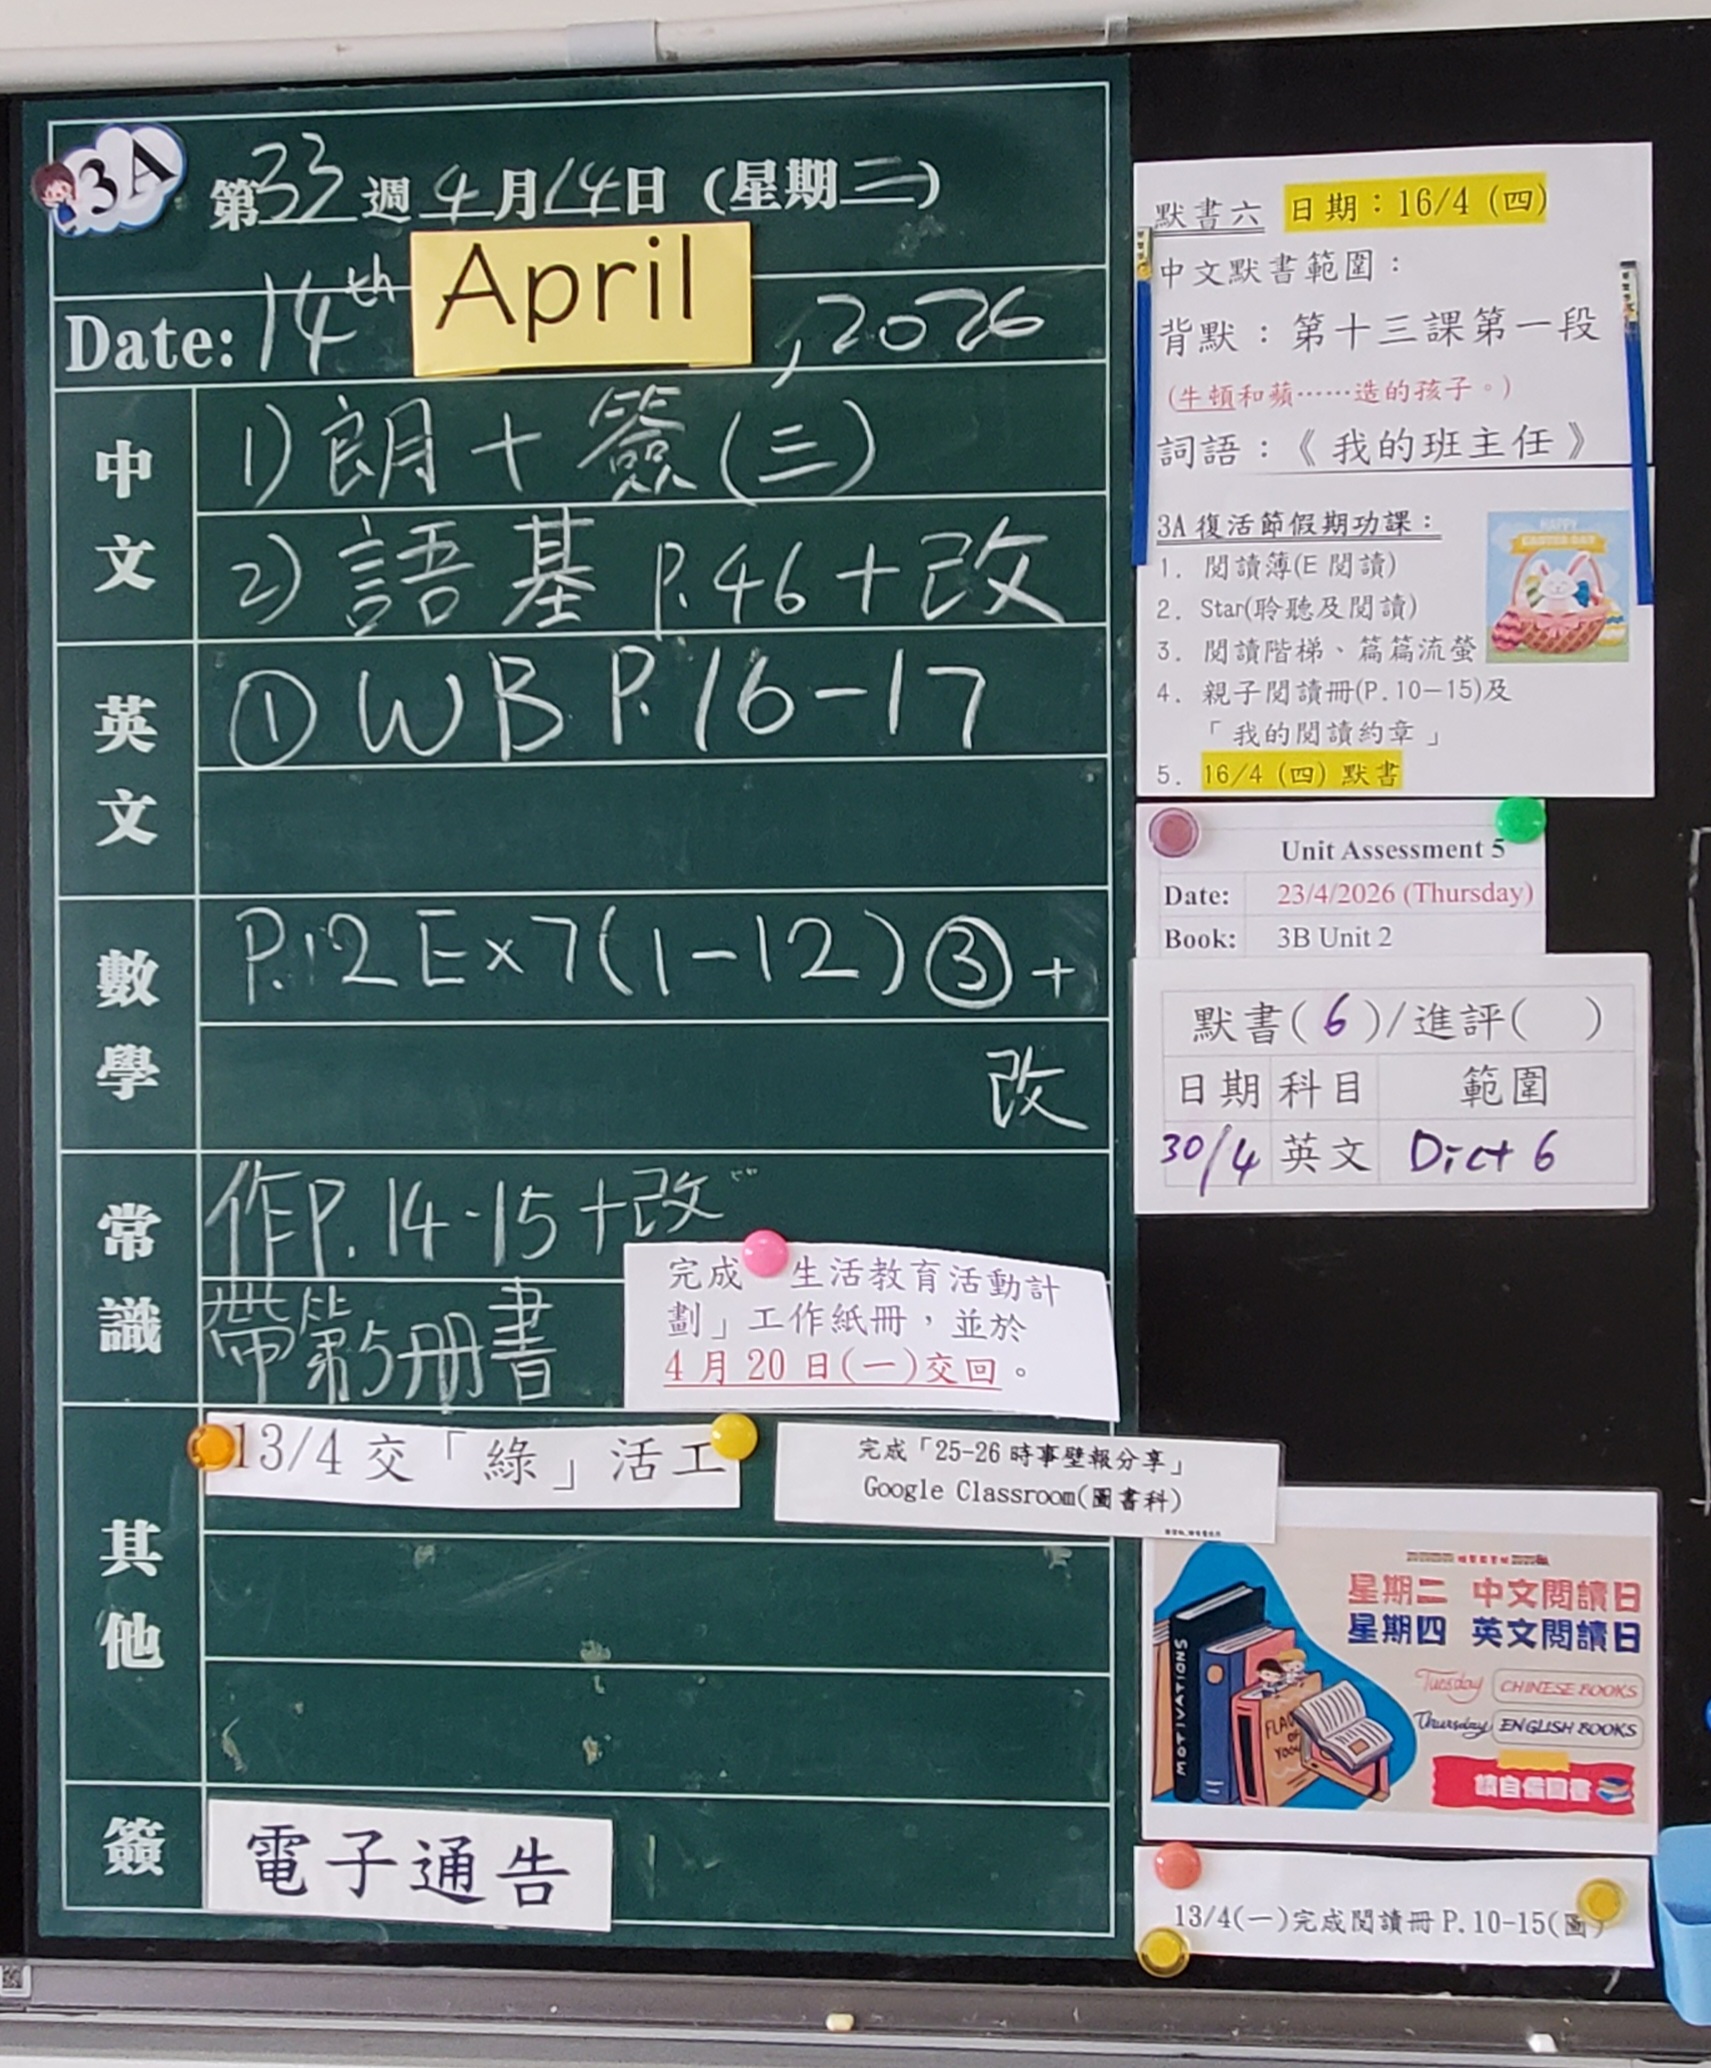 3A
第33週4月14日(星期二)
Date: 14th April, 2026
中文
1) 朗+簽(三)
2) 語基 P.46+改
英文
① WB P.16-17
數學
P.12 Ex7(1-12)③+
改
常識
作P.14-15+改
帶第5冊書
完成「生活教育活動計
劃」工作紙冊，並於
4月20日(一)交回。
其他
13/4 交「綠」活工
完成「25-26 時事壁報分享」
Google Classroom(圖書科)
簽
電子通告
默書六 日期：16/4 (四)
中文默書範圍：
背默：第十三課第一段
(牛頓和蘋……造的孩子。)
詞語：《我的班主任》
3A 復活節假期功課：
1. 閱讀簿(E 閱讀)
2. Star(聆聽及閱讀)
3. 閱讀階梯、篇篇流螢
4. 親子閱讀冊(P.10-15)及
「我的閱讀約章」
5. 16/4 (四) 默書
HAPPY
EASTER DAY
Unit Assessment 5
Date: 23/4/2026 (Thursday)
Book: 3B Unit 2
默書(6)/進評( )
日期 科目 範圍
30/4 英文 Dict 6
星期二 中文閱讀日
星期四 英文閱讀日
Tuesday CHINESE BOOKS
Thursday ENGLISH BOOKS
MOTIVATIONS
13/4(一)完成閱讀冊 P.10-15(圖)